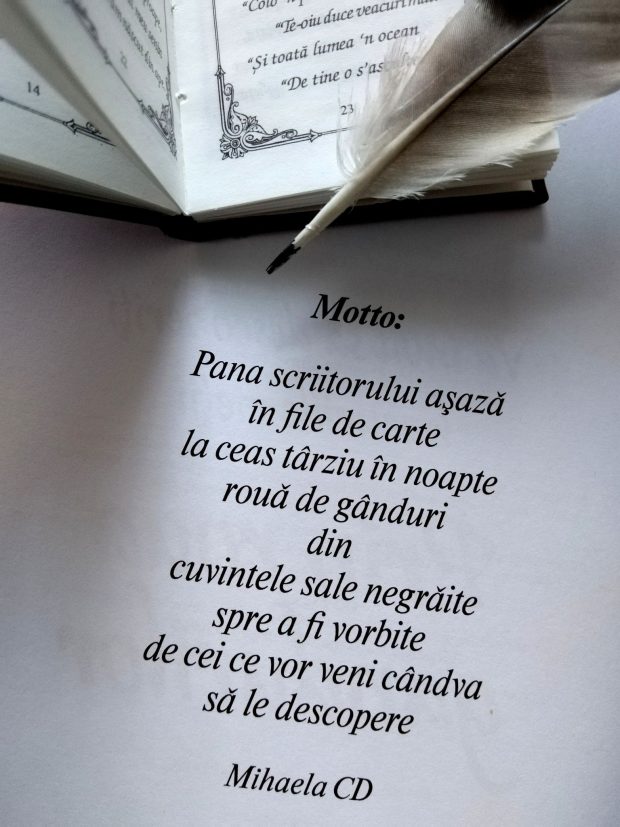 “Te-oiu duce veacuri
“Și toată lumea ‘n ocean
“De tine o
14
23
Motto:
Pana scriitorului aşază
în file de carte
la ceas târziu în noapte
rouă de gânduri
din
cuvintele sale negrăite
spre a fi vorbite
de cei ce vor veni cândva
să le descopere
Mihaela CD